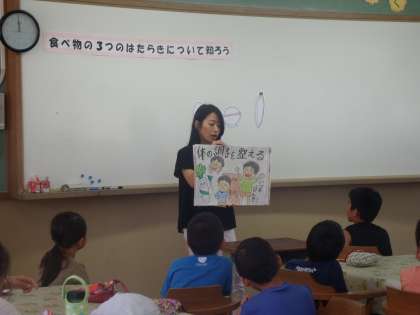 食べ物の3つのはたらきについて知ろう
体の調子を整える